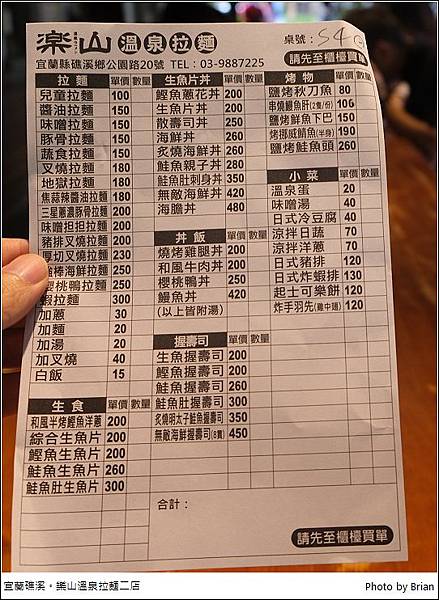 樂山 溫泉拉麵
桌號: S4
宜蘭縣礁溪鄉公園路20號 TEL:03-9887225
請先至櫃檯買單
拉麵 單價 數量
兒童拉麵 100
醬油拉麵 150
味噌拉麵 150
豚骨拉麵 150
蔬食拉麵 150
叉燒拉麵 180
地獄拉麵 180
焦蒜辣醬油拉麵 180
三星蔥濃豚骨拉麵 200
味噌担担拉麵 200
豬排叉燒拉麵 200
厚切叉燒拉麵 230
強棒海鮮拉麵 250
櫻桃鴨拉麵 250
蝦拉麵 300
加蔥 30
加麵 20
加湯 20
加叉燒 40
白飯 15
生食 單價 數量
和風半烤鰹魚洋蔥 200
綜合生魚片 200
鰹魚生魚片 200
鮭魚生魚片 260
鮭魚肚生魚片 300
生魚片丼 單價 數量
鰹魚蔥花丼 200
生魚片丼 200
散壽司丼 250
海鮮丼 260
炙燒海鮮丼 260
鮭魚親子丼 280
鮭魚肚刺身丼 350
無敵海鮮丼 420
海膽丼 480
丼飯 單價 數量
燒烤雞腿丼 200
和風牛肉丼 200
櫻桃鴨丼 250
鰻魚丼 420
(以上皆附湯)
握壽司 單價 數量
生魚握壽司 200
鰹魚握壽司 200
鮭魚握壽司 260
鮭魚肚握壽司 300
炙燒明太子鮭魚握壽司 350
無敵海鮮握壽司(8貫) 450
烤物 單價 數量
鹽烤秋刀魚 80
串燒鰻魚肝(2隻/份) 106
鹽烤鮮魚下巴 150
烤挪威鯖魚(半身) 190
鹽烤鮭魚頭 260
小菜 單價 數量
溫泉蛋 20
味噌湯 40
日式冷豆腐 40
涼拌日蔬 70
涼拌洋蔥 70
日式豬排 120
日式炸蝦排 130
起士可樂餅 120
炸手羽先(雞中翅) 120
合計:
請先至櫃檯買單
宜蘭礁溪。樂山溫泉拉麵二店
Photo by Brian